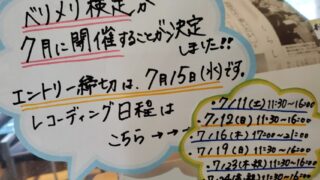 ベリメリ検定が
7月に開催することが決定
しました!!
エントリー締切は、7月15日(水)です。
レコーディング日程は
こちら→→→
・7/11(土)11:30~16:00
・7/12(日)11:30~16:00
・7/16(木)17:00~21:00
・7/19(日)11:30~16:00
・7/23(木・祝)11:30~16:00
・7/24(金・祝)11:30~16:00